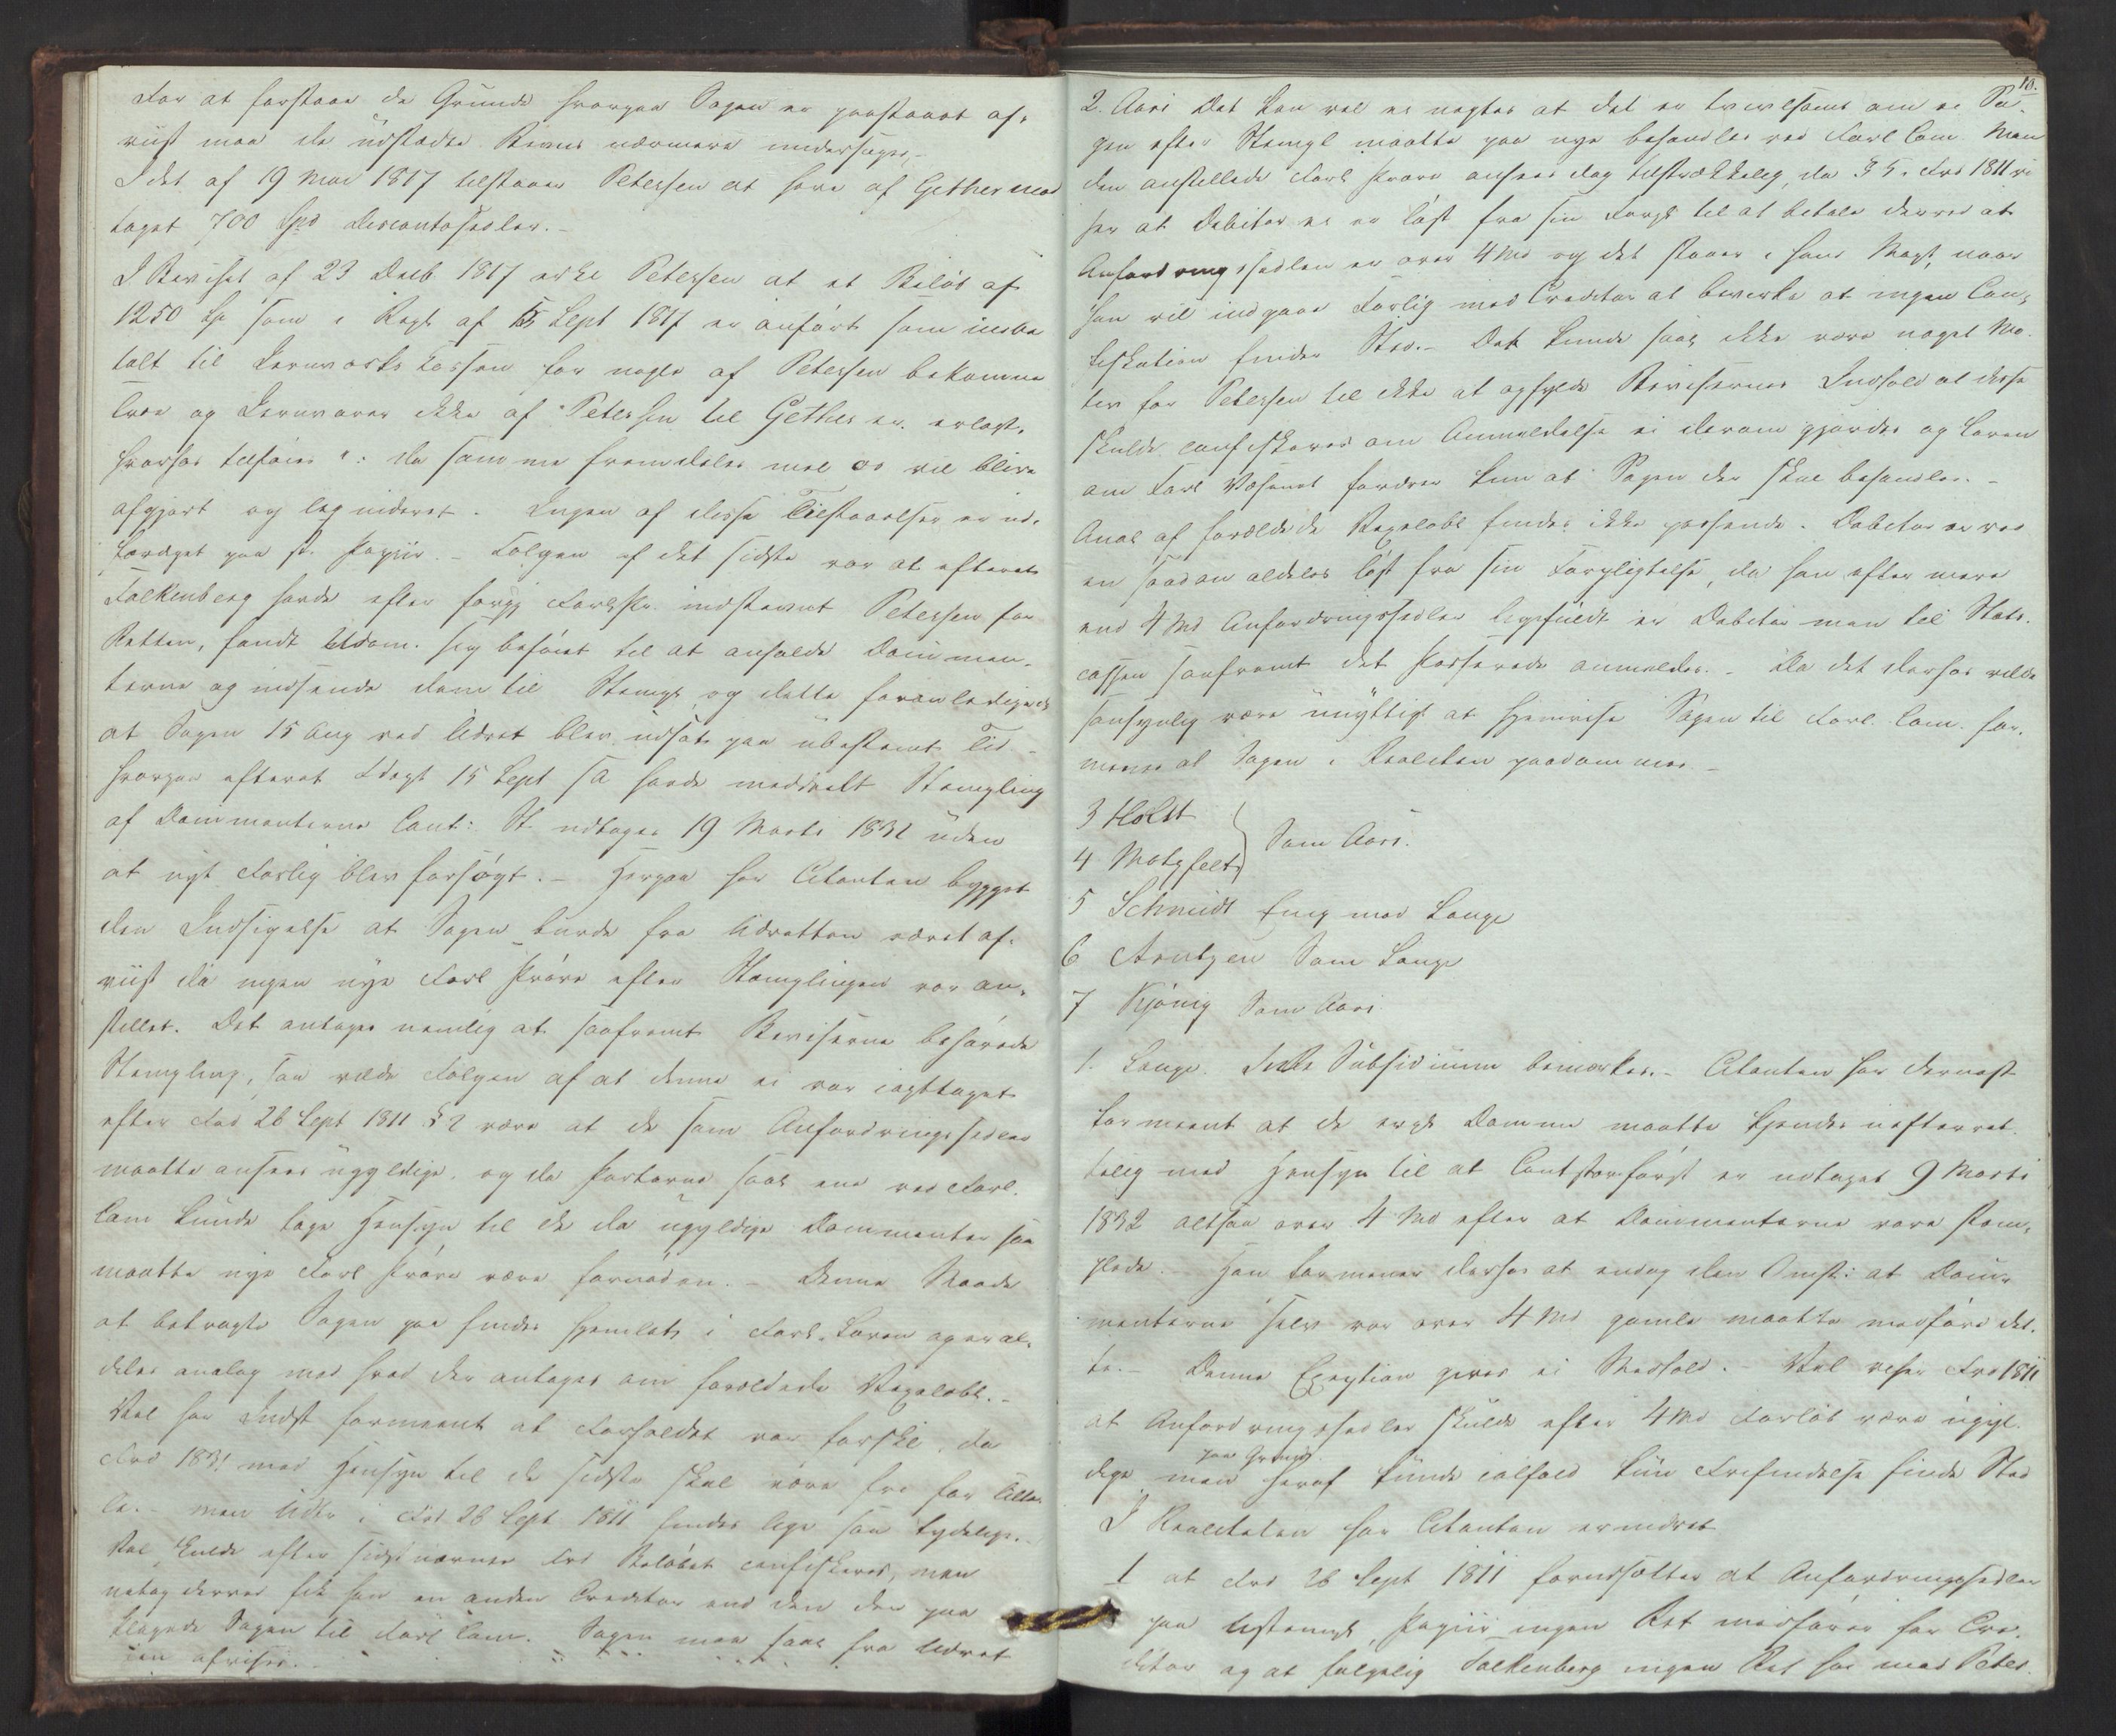 For at forstaae de Grunde hvorpaa Sagen er paastaaet af-
viist maa de udstædte Beviis nærmere undersøges. -
I det af 19 Mai 1817 tilstaaer Petersen at have af Gether mod
taget 700 Spd Discontosedler. -
I Beviset af 23 Decb 1817 erkl Petersen at et Beløb af
1250 Sp som i Regl af 15 Sept 1817 er anført som indbe
talt til Jernværks Cassen for nogle af Petersen bekomne
Træ og Jernvarer ikke af Petersen til Gether er erlagt,
hvorhos tilføies ": da samme fremdeles mel os vil blive
afgjort og liqvideret. Ingen af disse Tilstaaelser er ud-
færdiget paa st. Papiir. - Følgen af det sidste var at efterat
Falkenberg havde efter forgj Forl.Pr. indstævnt Petersen for
Retten, fandt Udom. sig beføiet til at anholde Docimen-
terne og indsende dem til Stempl. og dette foranledigede
at Sagen 15 Aug ved Udret blev udsat paa ubestemt Tid -
hvorpaa efterat Fdept 15 Sept s A havde meddeelt Stempling
af Docimenterne Cont: St. udtages 19 Marts 1832 uden
at nyt Forlig blev forsøgt. - Herpaa har Citanten bygget
den Indsigelse at Sagen burde fra Udretten været af-
viist da ingen nye Forl Prøve efter Stemplingen var an-
stillet. Det antages nemlig at saafremt Beviserne behøvede
Stempling, saa vilde Følgen af at denne ei var iagttaget
efter Frd 26 Sept 1811 § 2 være at de som Anfordringssedler
maatte ansees ugyldige, og da Parterne saal. ene ved Forl.
Com kunde tage Hensyn til de da ugyldige Documenter saa
maatte nye Forl Prøve være fornøden. - Denne Maade
at betragte Sagen paa findes hjemlet i Forl. Loven og er al-
deles analog med hvad der antages om forældede Vexelobl. -
Vel har Indst formeent at Forholdet var forskj. da
Frd 1831 med Hensyn til de sidste skal være fri for
men i Frd 26 Sept 1811 findes lige saa tydelige. -
Vel skulde efter sidstnævnte Frd Beløbet confiskeres, men
netop derved fik han en anden Creditor end den der paa
klagede Sagen til Forl Com. Sagen maa saal. fra Udret
ten afvises. -
10.
2. Aars Det kan vel ei negtes at det er tvivlsomt om ei Sa-
gen efter Stempl maatte paa nye behandles ved Forl Com. Men
den anstillede Forl Prøve ansees dog tilstrækkelig, da § 5. Frd 1811 vi
ser at Debitor ei er løst fra sin Forpl til at betale derved at
Anfordringssedlen er over 4 Md og det staaer i hans Magt, naar
han vil indgaae Forlig med Creditor at bevirke at ingen Con-
fiskation finder Sted. - Det kunde saal ikke være noget Mo-
tiv for Petersen til ikke at opfylde Bevisernes Indhold at disse
skulde confiskeres om Anmeldelse ei derom gjordes og Loven
om Forl Væsenet fordrer kun at Sagen der skal behandles. -
Anal af forældede Vexelobl findes ikke passende. Debitor er ved
en saadan aldeles løst fra sin Forpligtelse, da han efter mere
end 4 Md Anfordringssedler ligefuldt er Debitor men til Stats-
cassen saafremt det Passerede anmeldes. - Da det derhos vilde
sandsynlig være unyttigt at hjemvise Sagen til Forl. Com. for-
menes at Sagen i Realiteten paadømmes. -
3 Holst
4 Motzfelt } Som Aars.
5 Schmidt Enig med Lange
6 Arntzen Som Lange
7 Kjønig Som Aars
1. Lange. In Subsidium bemærkes. - Citanten har dernæst
formeent at de ergl Domme maatte kjendes uefterret-
telig med Hensyn til at Contstevn først er udtaget 9 Marts
1832 altsaa over 4 Md efter at Documenterne vare stem-
plede. Han formener derhos at endog den Omst: at Docu-
menterne selv var over 4 Md gamle maatte medføre det-
te. - Denne Exeption gives ei Medhold. - Vel viser Frd 1811
at Anfordringssedler skulde efter 4 Md Forløb være ugyl-
dige men paa Grund heraf kunde ialfald kun Frifindelse finde Sted
I Realiteten har Citanten erindret
1 at Frd 26 Sept 1811 forudsætter at Anfordringssedler
paa ustempl. Papiir ingen Ret medfører for Cre-
ditor og at følgelig Falkenberg ingen Ret har mod Peter-